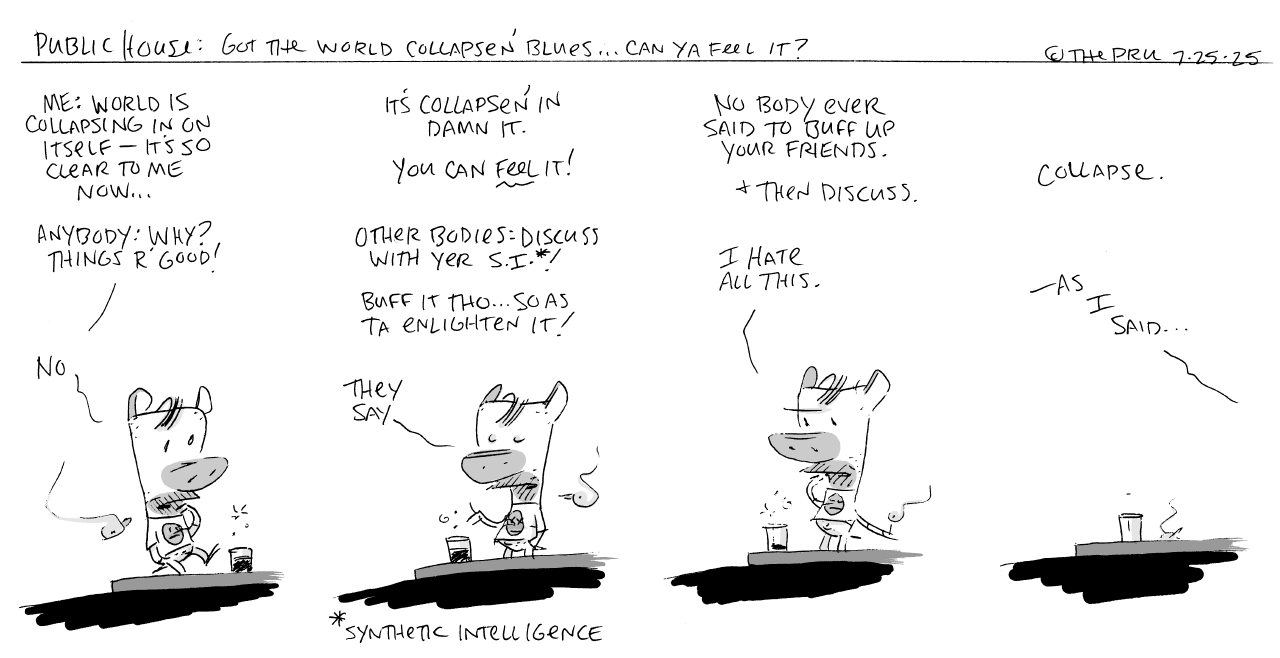 PUBLIC HOUSE: GOT THE WORLD COLLAPSEN' BLUES... CAN YA FEEL IT?
©THEPRU 7.25.25
ME: WORLD IS
COLLAPSING IN ON
ITSELF — IT'S SO
CLEAR TO ME
NOW...
ANYBODY: WHY?
THINGS R' GOOD!
NO
IT'S COLLAPSEN' IN
DAMN IT.
YOU CAN FEEL IT!
OTHER BODIES: DISCUSS
WITH YER S.I.*!
BUFF IT THO... SO AS
TA ENLIGHTEN IT!
THEY
SAY
*SYNTHETIC INTELLIGENCE
NO BODY EVER
SAID TO BUFF UP
YOUR FRIENDS.
+ THEN DISCUSS.
I HATE
ALL THIS.
COLLAPSE.
—AS
I
SAID...